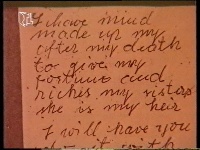 I have mind
made up my
after my death
to give my
fortune and
riches my sister
she is my heir
I will have you